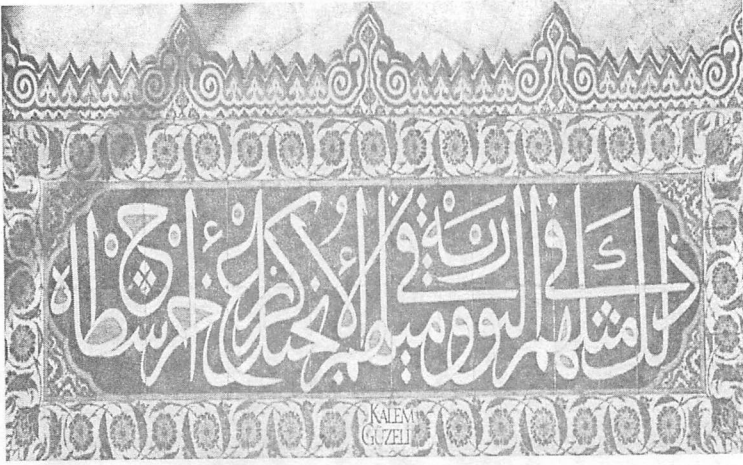 ذلك مثلهم في التورية ومثلهم في الانجيل كزرع اخرج شطأه
KALEM
GÜZELİ